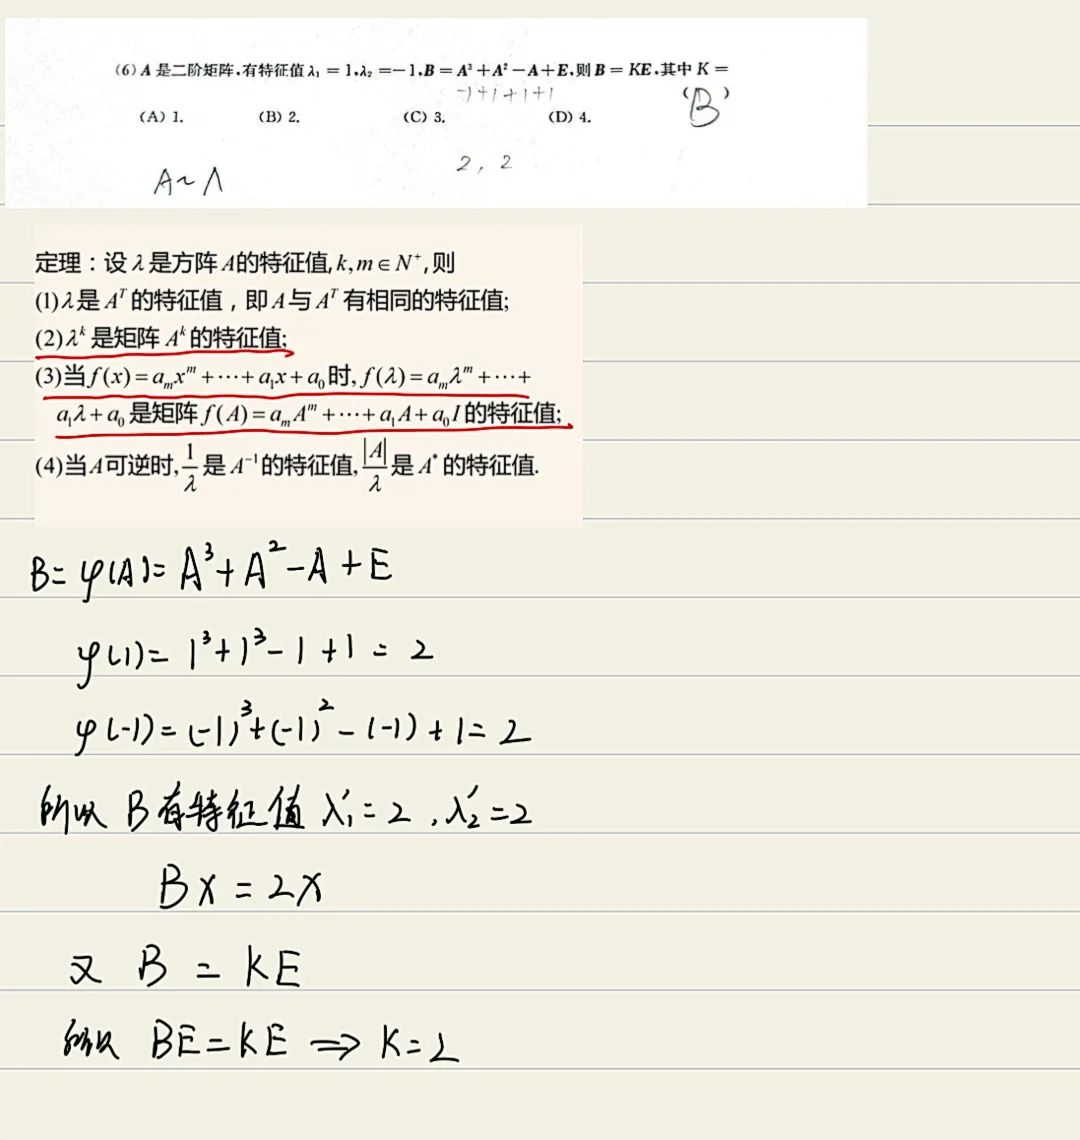 (6) A 是二阶矩阵,有特征值 λ₁ = 1,λ₂ = −1,B = A³ + A² − A + E,则 B = KE,其中 K =
−1+1+1+1
( B )
(A) 1. (B) 2. (C) 3. (D) 4.
2, 2
A ~ Λ
定理：设 λ 是方阵 A的特征值, k, m ∈ N⁺, 则
(1) λ是 Aᵀ 的特征值，即 A 与 Aᵀ 有相同的特征值;
(2) λᵏ 是矩阵 Aᵏ 的特征值;
(3)当 f(x) = aₘxᵐ + ⋯ + a₁x + a₀ 时, f(λ) = aₘλᵐ + ⋯ +
a₁λ + a₀ 是矩阵 f(A) = aₘAᵐ + ⋯ + a₁A + a₀I 的特征值;
(4)当 A可逆时, 1/λ 是 A⁻¹ 的特征值, |A|/λ 是 A* 的特征值.
B = φ(A) = A³ + A² − A + E
φ(1) = 1³ + 1³ − 1 + 1 = 2
φ(-1) = (-1)³ + (-1)² − (-1) + 1 = 2
所以 B 有特征值 λ₁′ = 2 , λ₂′ = 2
BX = 2X
又 B = KE
所以 BE = KE ⇒ K = 2